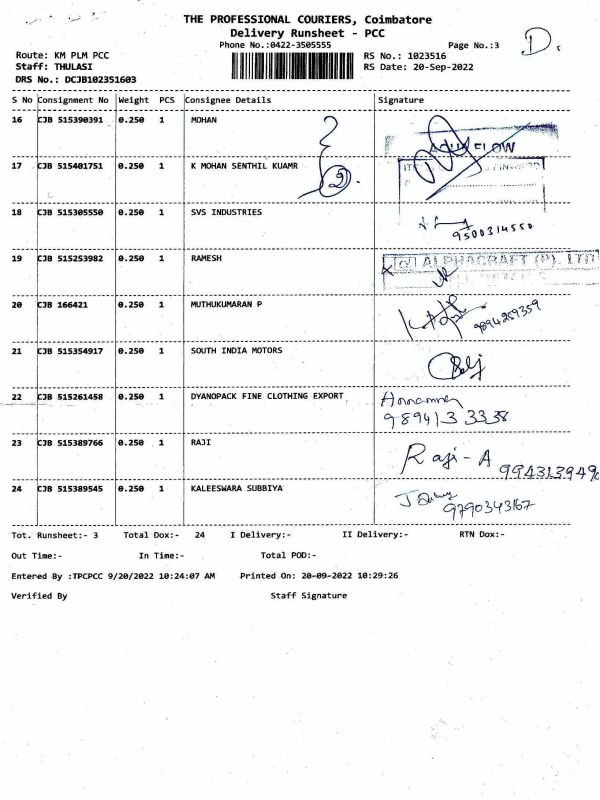 THE PROFESSIONAL COURIERS, Coimbatore
Delivery Runsheet - PCC
Phone No.:0422-3505555
Page No.:3
D.
Route: KM PLM PCC
RS No.: 1023516
Staff: THULASI
RS Date: 20-Sep-2022
DRS No.: DCJB102351603
S No Consignment No Weight PCS Consignee Details Signature
16 CJB 515390391 0.250 1 MOHAN
17 CJB 515401751 0.250 1 K MOHAN SENTHIL KUAMR
2
18 CJB 515305550 0.250 1 SVS INDUSTRIES
9500314550
19 CJB 515253982 0.250 1 RAMESH
ALPHACRAFT (P). LTD
20 CJB 166421 0.250 1 MUTHUKUMARAN P
9894259359
21 CJB 515354917 0.250 1 SOUTH INDIA MOTORS
22 CJB 515261458 0.250 1 DYANOPACK FINE CLOTHING EXPORT
9894133338
23 CJB 515389766 0.250 1 RAJI Raji - A
24 CJB 515389545 0.250 1 KALEESWARA SUBBIYA
9790343167
Tot. Runsheet:- 3 Total Dox:- 24 I Delivery:- II Delivery:- RTN Dox:-
Out Time:- In Time:- Total POD:-
Entered By :TPCPCC 9/20/2022 10:24:07 AM Printed On: 20-09-2022 10:29:26
Verified By Staff Signature